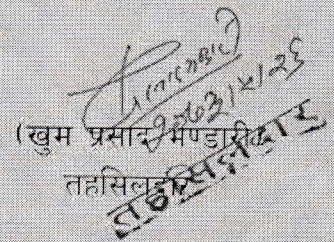 २०७३।५।२६
(खुम प्रसाद भण्डारी)
तहसिलदार
तहसिलदार